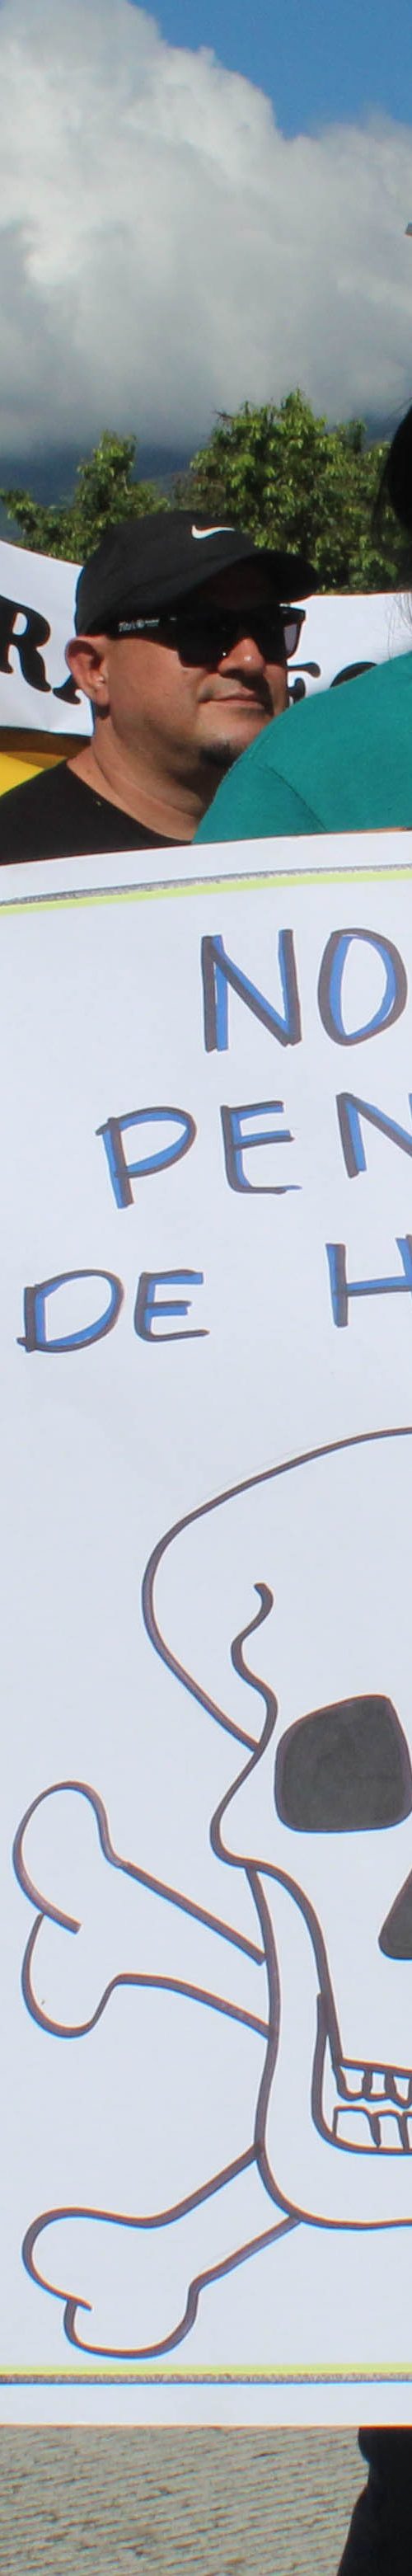 NO
PEN
DE H